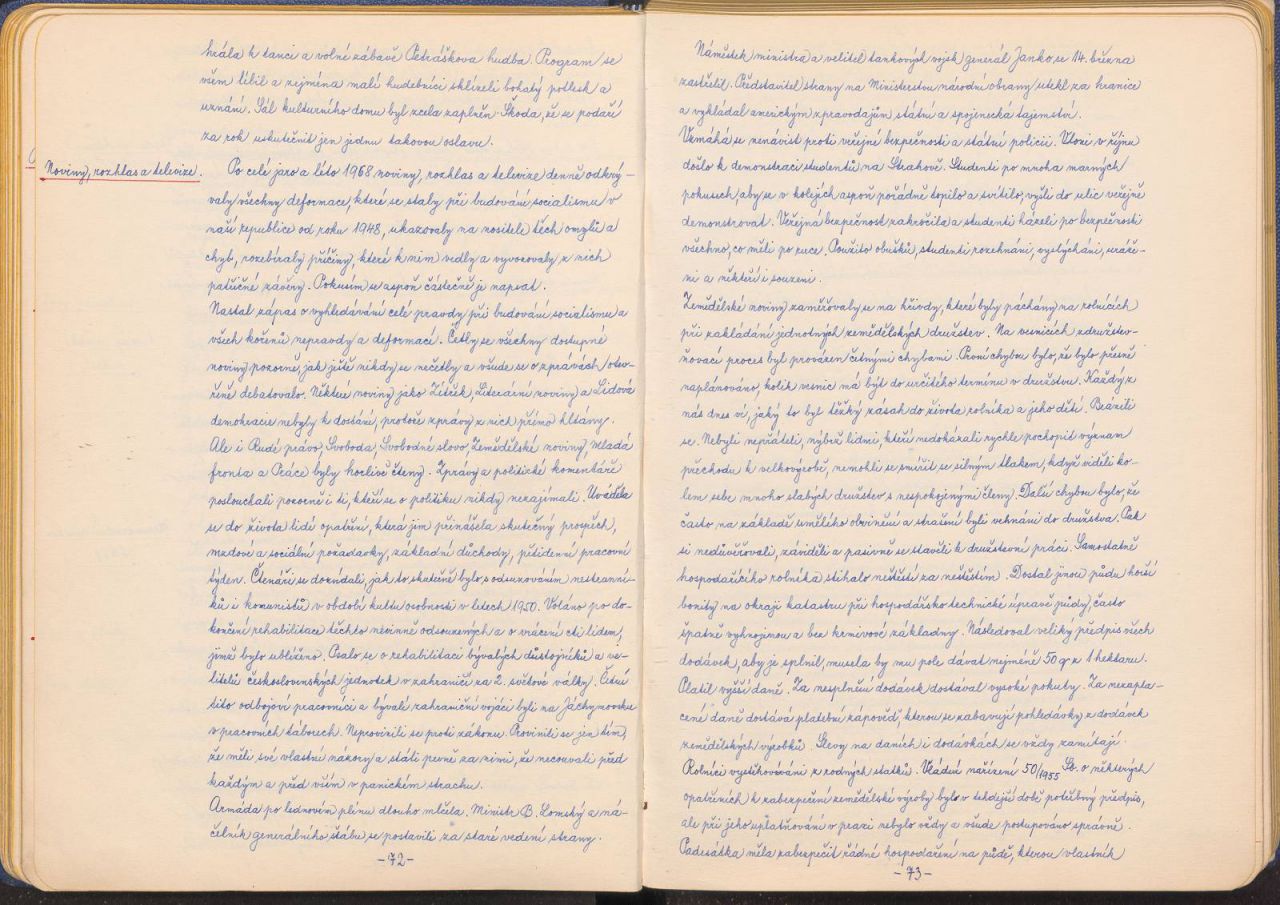 hrála k tanci a volné zábavě Petráškova hudba. Program se
všem líbil a zejména malí hudebníci sklízeli bohatý potlesk a
uznání. Sál kulturního domu byl zcela zaplněn. Škoda, že se podaří
za rok uskutečnit jen jednu takovou oslavu.
Noviny, rozhlas a televize.
Po celé jaro a léto 1968 noviny, rozhlas a televize denně odkrý-
valy všechny deformace, které se staly při budování socialismu v
naší republice od roku 1948, ukazovaly na nositele těch omylů a
chyb, rozebíraly příčiny, které k nim vedly a vyvozovaly z nich
patřičné závěry. Pokusím se aspoň částečně je napsat.
Nastal zápas o vyhledávání celé pravdy při budování socialismu a
všech kořenů nepravdy a deformací. Četly se všechny dostupné
noviny pozorně, jak ještě nikdy se nečetly a všude se o zprávách otev-
řeně debatovalo. Některé noviny jako Zítřek, Literární noviny a Lidová
demokracie nebyly k dostání, protože zprávy z nich přímo hltány.
Ale i Rudé právo, Svoboda, Svobodné slovo, Zemědělské noviny, Mladá
fronta a Práce byly horlivě čteny. Zprávy a politické komentáře
poslouchali pozorně i ti, kteří se o politiku nikdy nezajímali. Uváděla
se do života lidí opatření, která jim přinášela skutečný prospěch,
mzdové a sociální požadavky, základní důchody, pětidenní pracovní
týden. Čtenáři se dozvídali, jak to skutečně bylo s odsuzováním nestraní-
ků i komunistů v období kultu osobnosti v letech 1950. Voláno po do-
končení rehabilitace těchto nevinně odsouzených a o vrácení cti lidem,
jimž bylo ublíženo. Psalo se o rehabilitaci bývalých důstojníků a ve-
litelů československých jednotek v zahraničí za 2. světové války. Četní
tito odbojoví pracovníci a bývalí zahraniční vojáci byli na Jáchymovsku
v pracovních táborech. Neprovinili se proti zákonu. Provinili se jen tím,
že měli své vlastní názory a stáli pevně za nimi, že necouvali před
každým a před vším v panickém strachu.
Armáda po lednovém plénu dlouho mlčela. Ministr B. Lomský a ná-
čelník generálního štábu se postavili za staré vedení strany.
-72-
Náměstek ministra a velitel tankových vojsk generál Janko se 14. března
zastřelil. Představitel strany na Ministerstvu národní obrany utekl za hranice
a vykládal americkým zpravodajům státní a spojenecká tajemství.
Vzmáhá se nenávist proti veřejné bezpečnosti a státní policii. Vloni v říjnu
došlo k demonstraci studentů na Strahově. Studenti po mnoha marných
pokusech, aby se v kolejích aspoň pořádně topilo a svítilo, vyšli do ulic veřejně
demonstrovat. Veřejná bezpečnost zakročila a studenti házeli po bezpečnosti
všechno, co měli po ruce. Použito obušků, studenti rozehnáni, vyslýcháni, uráže-
ni a někteří i souzeni.
Zemědělské noviny zaměřovaly se na křivdy, které byly páchány na rolnících
při zakládání jednotných zemědělských družstev. Na vesnicích združstev-
ňovací proces byl provázen četnými chybami. První chybou bylo, že bylo přesně
naplánováno, kolik vesnic má být do určitého termínu v družstvu. Každý z
nás dnes ví, jaký to byl těžký zásah do života rolníka a jeho dětí. Bránili
se. Nebyli nepřáteli, nýbrž lidmi, kteří nedokázali rychle pochopit význam
přechodu k velkovýrobě, nemohli se smířit se silným tlakem, když viděli ko-
lem sebe mnoho slabých družstev s nespokojenými členy. Další chybou bylo, že
často na základě umělého obvinění a strašení byli vehnáni do družstva. Pak
si nedůvěřovali, záviděli a pasivně se stavěli k družstevní práci. Samostatně
hospodařícího rolníka stihalo neštěstí za neštěstím. Dostal jinou půdu horší
bonity na okraji katastru při hospodářsko technické úpravě půdy, často
špatně vyhnojenou a bez krmivové základny. Následoval veliký předpis všech
dodávek, aby je splnil, musela by mu pole dávat nejméně 50 q z 1 hektaru.
Platil vyšší daně. Za nesplnění dodávek dostával vysoké pokuty. Za nezapla-
cené daně dostává platební zápověď, kterou se zabavují pohledávky z dodávek
zemědělských výrobků. Slevy na daních i dodávkách se vždy zamítají.
Rolníci vystěhováváni z rodných statků. Vládní nařízení 50/1955 Sb. o některých
opatřeních k zabezpeření zemědělské výroby bylo v tehdejší době potřebný předpis,
ale při jeho uplatňování v praxi nebylo vždy a všude postupováno správně.
Padesátka měla zabezpečit řádné hospodaření na půdě, kterou vlastník
-73-